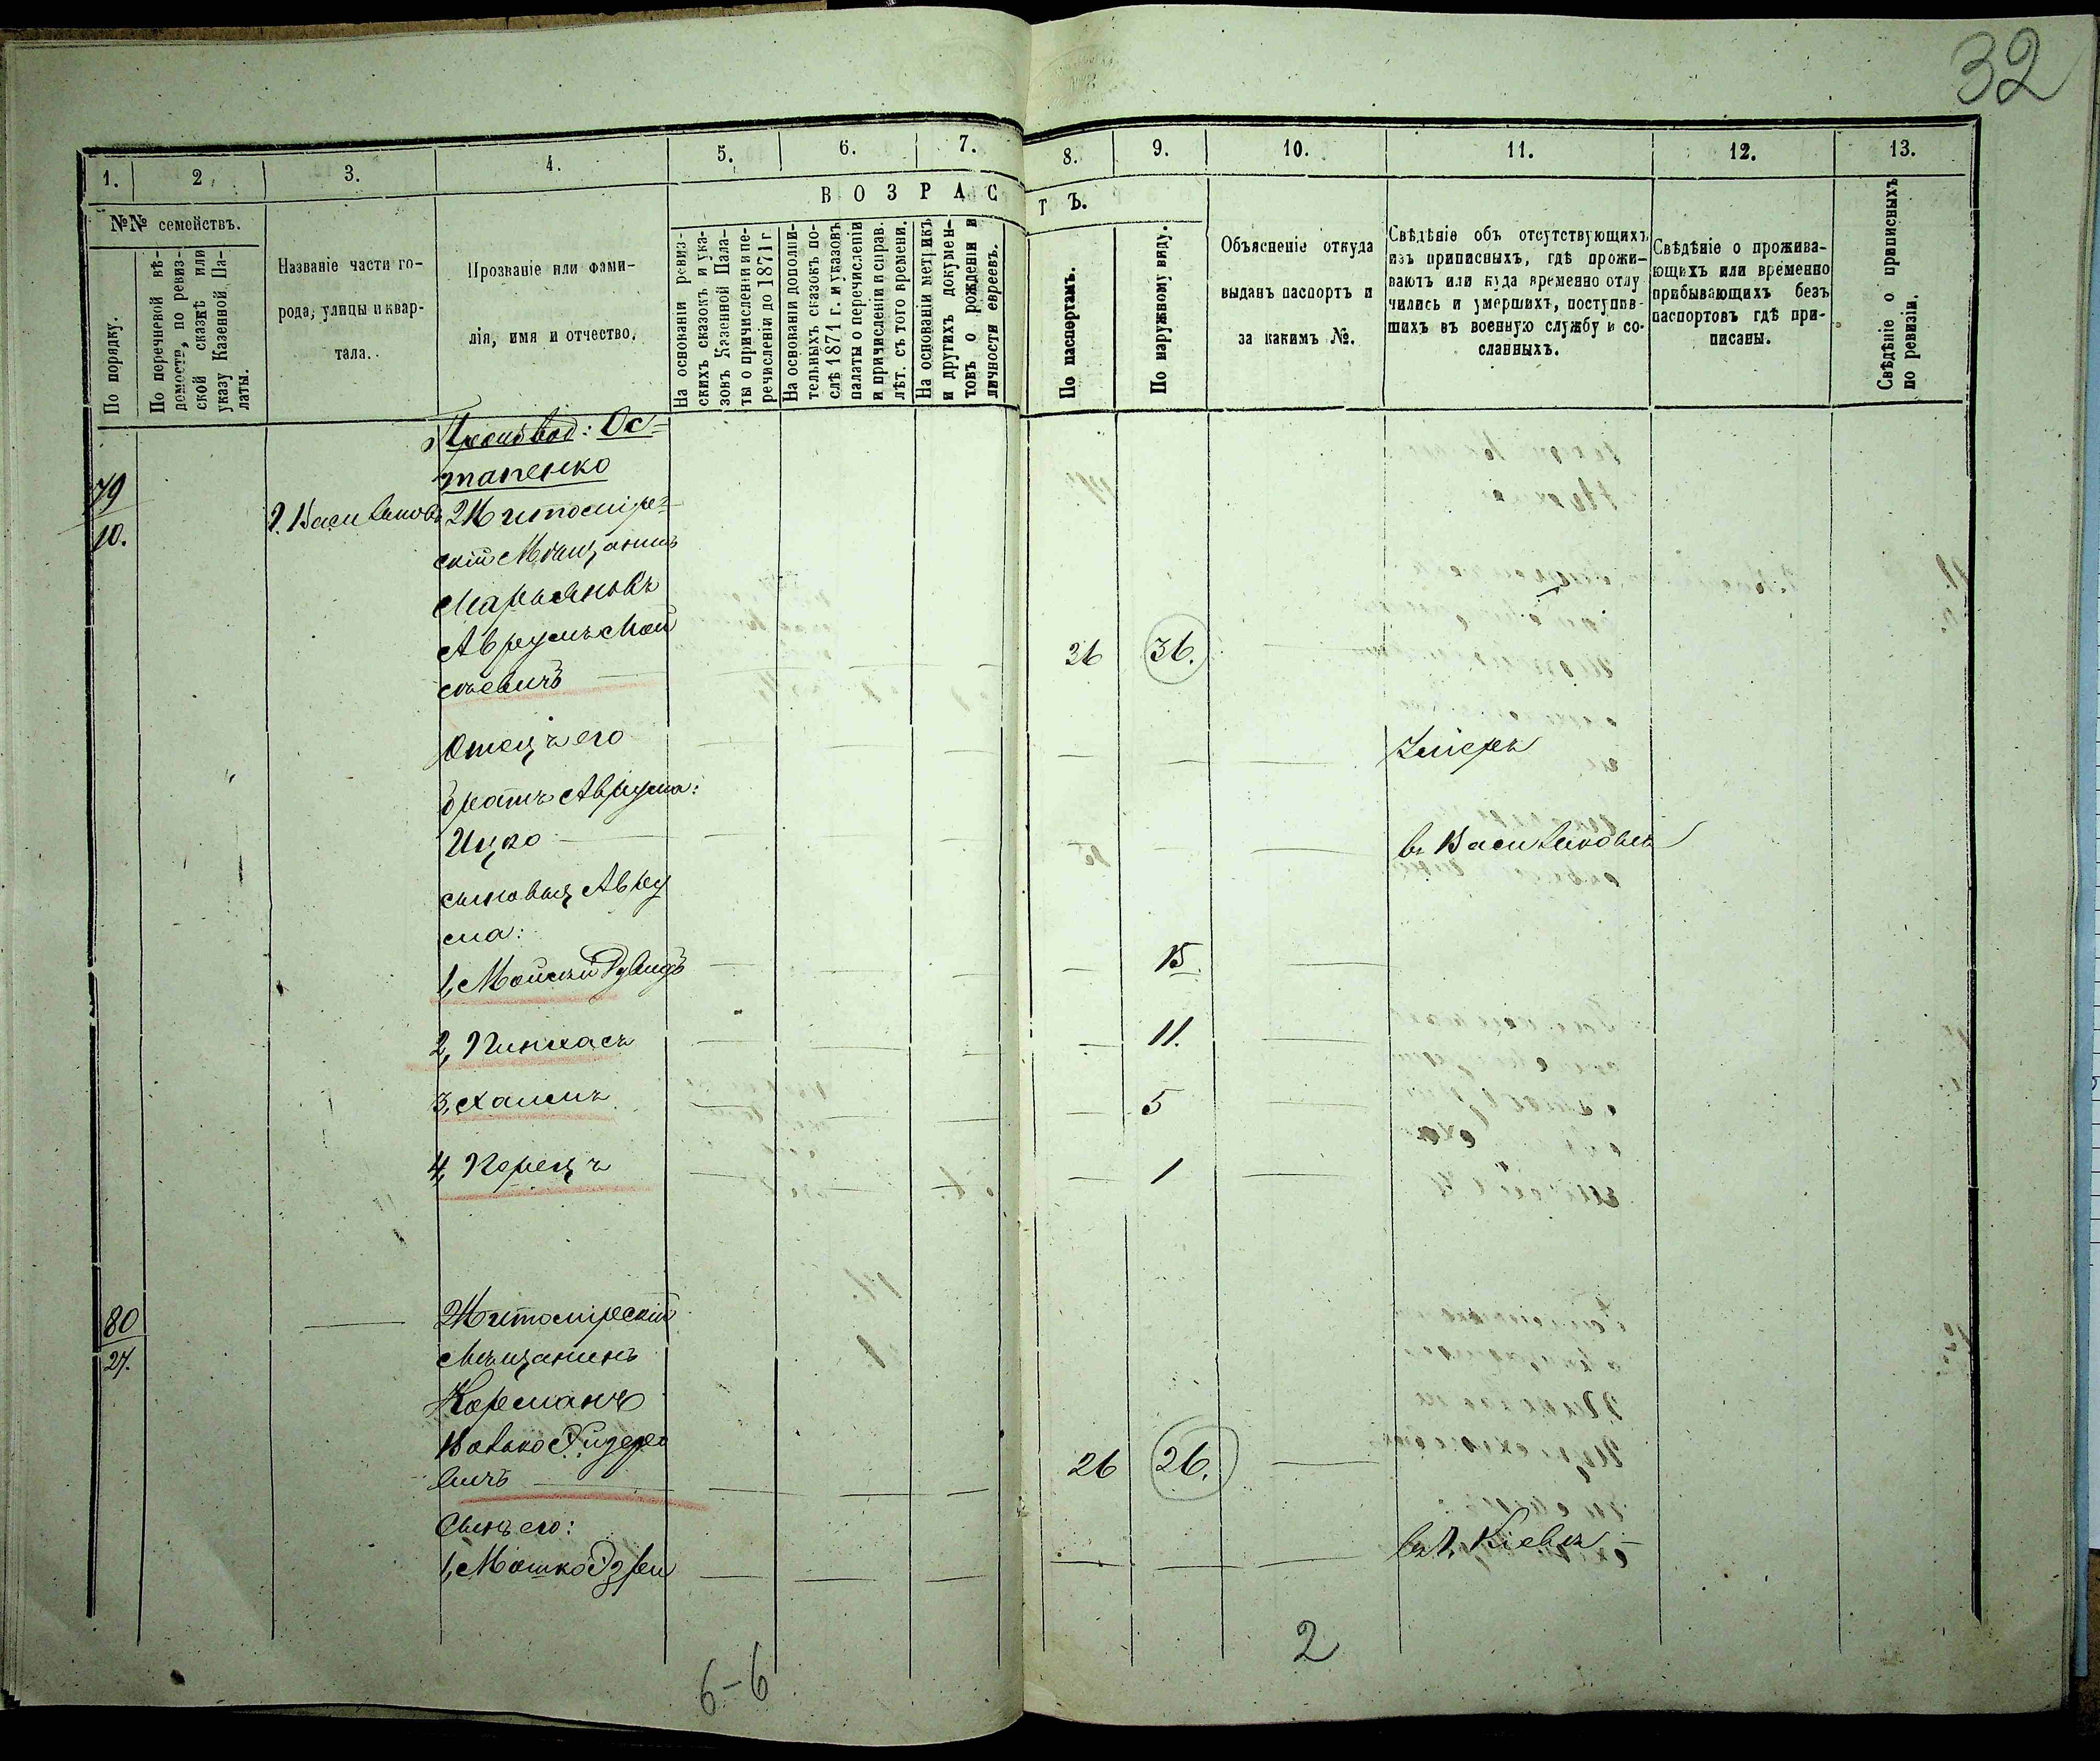 32
1.
2
3.
4.
5.
6.
7.
8.
9.
10.
11.
12.
13.
№№ семействъ.
По порядку.
По перечневой вѣ-
домости, по ревиз-
ской сказкѣ или
указу Казенной Па-
латы.
Названіе части го-
рода, улицы и квар-
тала.
Прозваніе или фами-
лія, имя и отчество.
ВОЗРАСТЪ.
На основаніи ревиз-
скихъ сказокъ и ука-
зовъ Казенной Пала-
ты о причисленіи и пе-
речисленіи до 1871 г.
На основаніи дополни-
тельныхъ сказокъ по-
слѣ 1871 г. и указовъ
палаты о перечисленіи
и причисленіи и справ.
лѣт. съ того времени.
На основаніи метрикъ
и другихъ докумен-
товъ о рожденіи и
личности евреевъ.
По паспортамъ.
По наружному виду.
Объясненіе откуда
выданъ паспортъ и
за какимъ №.
Свѣдѣніе объ отсутствующихъ
изъ приписныхъ, гдѣ прожи-
ваютъ или куда временно отлу
чились и умершихъ, поступив-
шихъ въ военную службу и со-
сланныхъ.
Свѣдѣніе о прожива-
ющихъ или временно
прибывающихъ безъ
паспортовъ гдѣ при-
писаны.
Свѣдѣніе о приписныхъ
по ревизіи.
Ос=
тапенко
79
10.
Г. Васильковъ
Житомiр=
скій Мѣщанинъ
Марьяновъ
Аврумъ Мой
сьевичъ
36
36.
Отецъ его
Умеръ
братъ Аврума:
Ицко
въ Васильковѣ
сыновья Авру
ма:
1, Мойсей
15
2, Пинхасъ
11.
3, Хаимъ
5
4, Перецъ
1
80
27.
Житомірскій
Мѣщанинъ
Корсманъ
Волько
вичъ
26
26.
Сынъ его:
1, Мошко
въ г. Кіевѣ
6-6
2